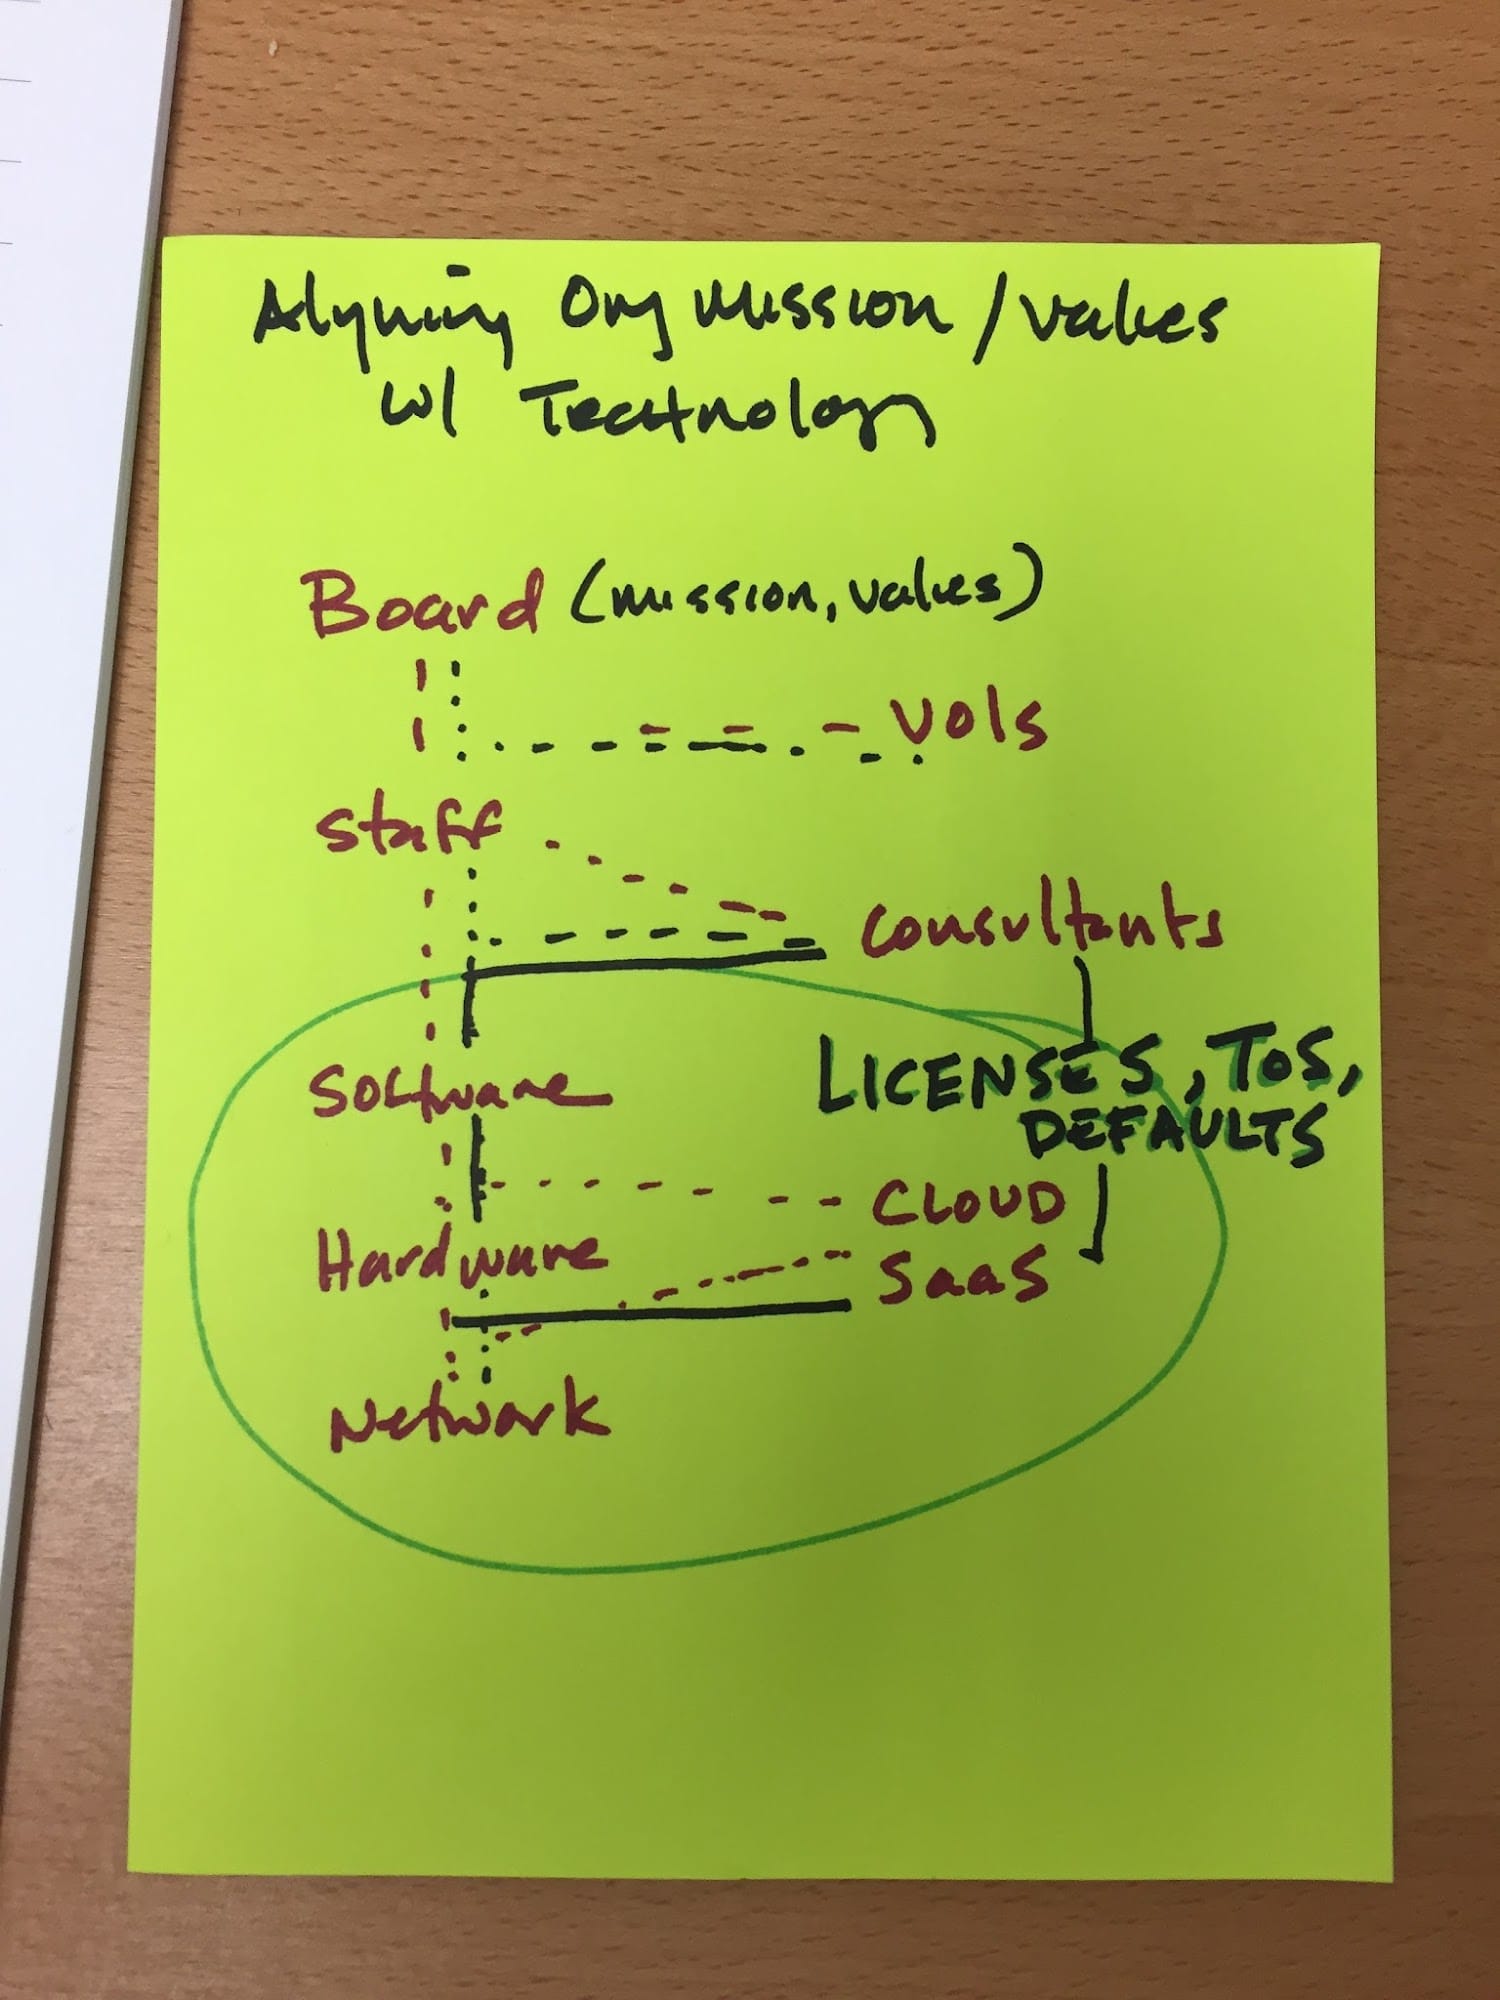 Aligning Org Mission/Values
w/ Technology
Board (mission, values)
Vols
Staff
Consultants
Software
LICENSES, TOS,
DEFAULTS
CLOUD
Hardware
SaaS
Network